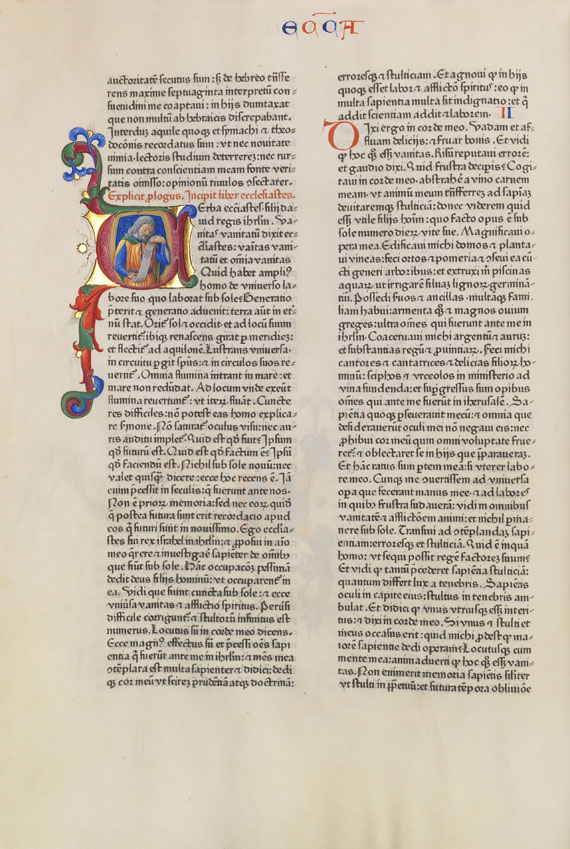 ECCA
auctoritatē secutus sum: sʒ de hebreo trāsfe
rens maxime septuaginta interpretū con⸗
suetudini me coaptaui: in hijs dumtaxat
que non multū ab hebraicis discrepabant.
Interdum aquile quoqꝫ et symachi ⁊ theo⸗
docōnis recordatus sum: vt nec nouitate
nimia lectoris studium deterrerē: nec rur⸗
sum contra conscientiam meam fonte veri⸗
tatis omisso: opinionū riuulos ꝯsectarer.
Explicit ꝓlogus. Incipit liber ecclesiastes.
Verba ecclīastes. filij da⸗
uid regis ihrlīm. Va⸗
nitas vanitatū dixit ec⸗
clīastes: vāitas vani⸗
tatū et omīa vanitas
Quid habet ampliꝰ
homo de vniuerso la⸗
bore suo quo laborat sub sole: Generatio
p̄terit ⁊ generatio aduenit: terra aūt in et⸗
nū stat. Oritᷣ sol ⁊ occidit: et ad locū suum
reuertitᷣ: ibiqꝫ renascens girat ꝑ meridiē:
et flectitᷣ ad aquilonē. Lustrans vniuersa
in circuitu ꝑgit spūs: ⁊ in circulos suos re⸗
uertitᷣ. Omīa flumina intrant in mare: et
mare non redūdat. Ad locum vnde exeūt
flumina reuertunt ᷣ: vt iteꝝ fluāt. Cuncte
res difficiles: nō potest eas homo explica⸗
re ẜmone. Nō saturatᷣ oculus visu: nec au⸗
ris auditu impletᷣ. Quid est qd̄ fuit: Ipsum
qd̄ futurū est. Quid est qd̄ factum ē: Ipsū
qd̄ faciendū est. Nichil sub sole nouū: nec
valet quisqᷓꝫ dicere: ecce hoc recens ē. Iā
enim p̄cessit in seculis: q̄ fuerunt ante nos.
Non ē prioꝝ memoria: sed nec eoꝝ quidē
q̄ postea futura sunt erit recordacio apud
eos q̄ futuri sunt in nouissimo. Ego ecclīa⸗
stes fui rex israhel in ihrlīm: ⁊ ꝓposui in aīo
meo q̄rere ⁊ inuestigare sapienter de omībꝰ
que fiūt sub sole. Hāc occupacōꝫ pessimam
dedit deus filijs hominū: vt occuparentᷣ in
ea. Vidi que fiunt cuncta sub sole: ⁊ ecce
vniūsa vanitas ⁊ afflictio spiritus. Ꝑuersi
difficile corigunt ᷣ: ⁊ stultoꝝ īfinitus est
numerus. Locutus sū in corde meo dicens.
Ecce magnꝰ effectus sū et p̄cessi oēs sapi
entia q̄ fuerūt ante me in ihrlīm: ⁊ mēs mea
ꝯtēplata est multa sapienter ⁊ didici: dedi
qꝫ cor meū vt scirē prudētiā atqꝫ doctrinā:
erroresqꝫ ⁊ stulticiam. Et agnoui ꝙ in hijs
quoqꝫ esset labor ⁊ afflictō spiritus: eo ꝙ in
multa sapientia multa sit indignatio: et q̄
addit scientiam addit ⁊ laborem. II
Dixi ergo in corde meo. Vadam et af⸗
fluam delicijs: ⁊ fruar bonis. Et vidi
ꝙ hoc qꝫ eēt vanitas. Risū reputaui errorē:
et gaudio dixi. Quid frustra decipis: Cogi⸗
taui in corde meo abstrahē a vino carnem
meam: vt animū meum trāsferrē ad sapiaꝫ
deuitaremqꝫ stulticiā: donec viderem quid
eēt vtile filijs hoīm: quo facto opus ē sub
sole numero dieꝝ vite sue. Magnificaui o⸗
pera mea. Edificaui michi domos ⁊ planta⸗
ui vineas: feci ortos ⁊ pomeria ⁊ seui ea cū⸗
cti generi arboribus: et extruxi m̄ piscinas
aquaꝝ: ut irrigarē siluā lignoꝝ germinā⸗
tiū. Possedi seruos ⁊ ancillas. multāqꝫ fami
liam habui: armenta qꝫ ⁊ magnos ouium
greges: ultra omēs qui fuerunt ante me in
ihrlīm. Coaceruaui michi argentū ⁊ aurū:
et substantias regū ⁊ ꝓuinciaꝝ. Feci michi
cantores ⁊ cantatrices ⁊ delicias filioꝝ ho⸗
minū: sciphos ⁊ vrceolos in ministerio ad
vina fundenda: et suꝑgressus sum opibus
omēs qui ante me fuerūt in iherusalē. Sa⸗
piētia quoqꝫ ꝑseuerauit mecū: ⁊ omnia que
desiderauerūt oculi mei nō negaui eis: nec
ꝓhibui cor meū quin omni voluptate frue⸗
retᷣ: ⁊ oblectaret se in hijs que p̄paraueraꝫ.
Et hāc ratus sum ptem meā: si vterer labo⸗
re meo. Cunqꝫ me ꝯuertissem ad vniuersa
opa que fecerant manus mee: ⁊ ad labores
in quibꝰ frustra sudauerā: vidi in omnibus
vanitatē ⁊ afflictōem animi: et nichil ꝑma⸗
nere sub sole. Transiui ad ꝯtēplandaꝫ sapi⸗
entiam: erroresqꝫ et stulticiā. Quid ē inquā
homo: vt sequi possit regē factorē suum:
Et vidi ꝙ tantū p̄cederet sapiētia stulticiā:
quantum differt lux a tenebris. Sapiētis
oculi in capite eius: stultus in tenebris am⸗
bulat. Et didici ꝙ vnus vtriusqꝫ eēt interi⸗
tus: ⁊ dixi in corde meo. Si vnus ⁊ stulti et
meus occasus erit: quid michi ꝓdest ꝙ ma⸗
iorē sapientie dedi operam: Locutusqꝫ cum
mente mea: animaduerti ꝙ hoc qꝫ eēt vani⸗
tas. Non enim erit memoria sapiētis siliter
vt stulti in ꝑpetuū: et futura tēpora obliuiōe